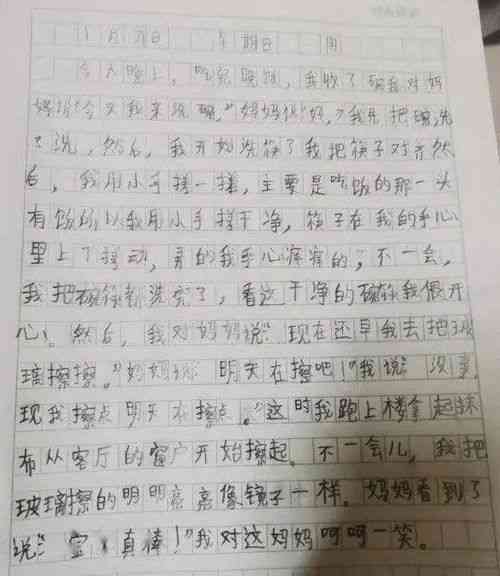 1月 日 星期日 阴
今天晚上，吃完晚饭，我收了碗我对妈
妈说“今天我来洗碗，”妈妈说“好，”我先把碗洗
了洗，然后，我开始洗筷了我把筷子对齐然
后，我用小手搓一搓，主要是吃饭的那一头
有饭所以我用小手搓干净，筷子在我的手心
里上下搓动，弄的我手心痒痒的，不一会，
我把碗筷都洗完了，看这干净的碗筷我很开
心。然后，我对妈妈说：“现在还早我去把玻
璃擦擦。”妈妈说：“明天在擦吧！”我说：“没事，
现我擦点明天在擦点。”这时我跑上楼拿起抹
布从客厅的窗户开始擦起。不一会儿，我把
玻璃擦的明明亮亮像镜子一样。妈妈看到了
说：“宝，真棒！”我对这妈妈呵呵一笑。